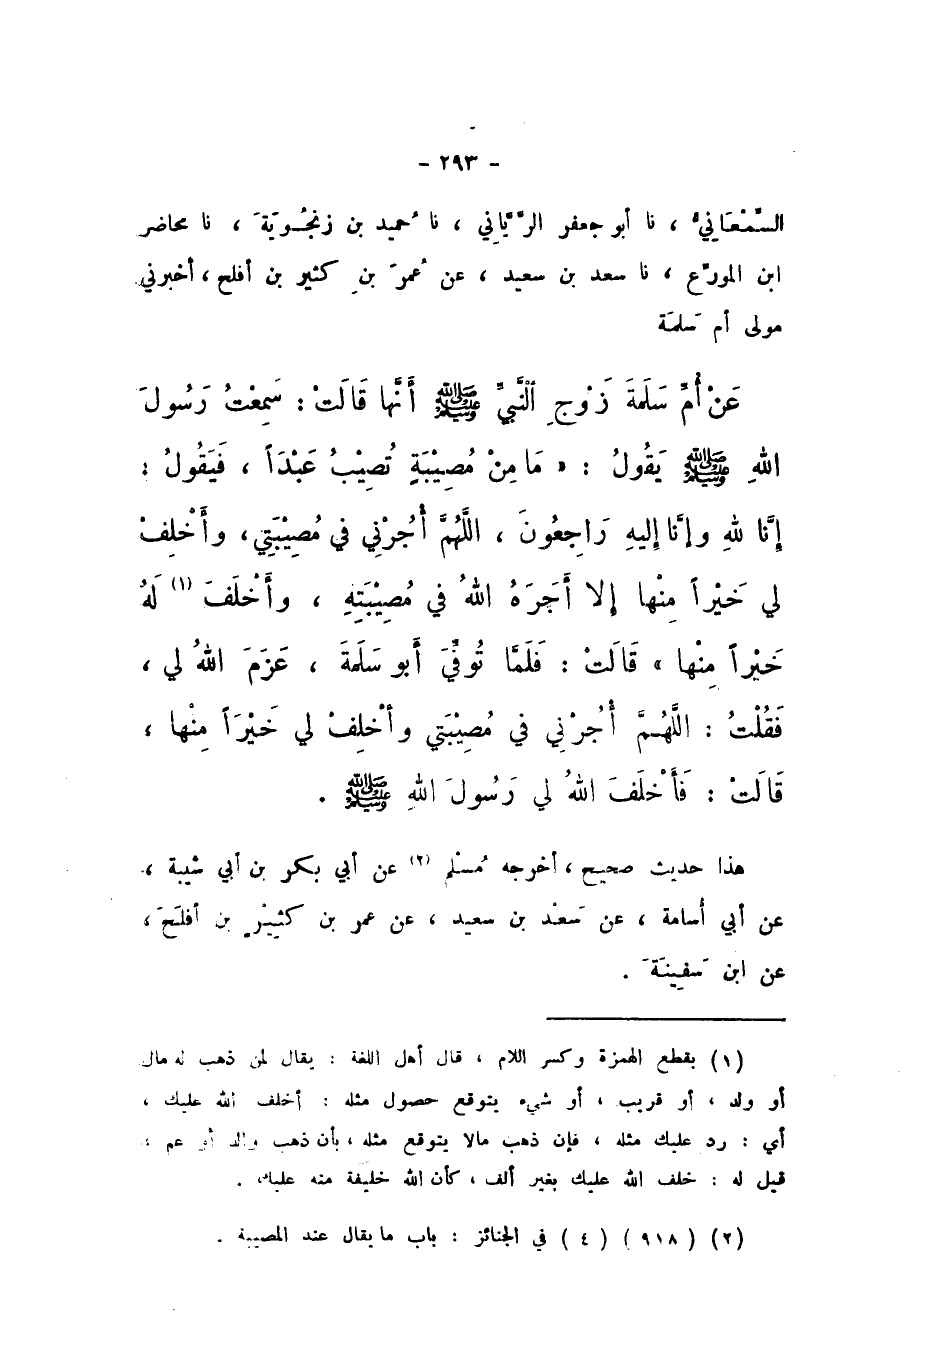 - ٢٩٣ -
السَّمْعَانيُّ ، نا أبو جعفر الرَّيَّاني ، نا حُميد بن زنجُويَةَ ، نا محاضر
ابن المورِّع ، نا سعد بن سعيد ، عن عُمرَ بنِ كثير بن أفلح ، أخبرني
مولى أم سَلَمَة
عَنْ أُمِّ سَلَمَةَ زَوْجِ ٱلنَّبِيِّ ﷺ أَنَّها قَالَتْ : سَمِعْتُ رَسُولَ
اللهِ ﷺ يَقُولُ : « مَا مِنْ مُصِيْبَةٍ تُصِيْبُ عَبْدَاً ، فَيَقُولُ :
إِنَّا للهِ وإِنَّا إليهِ رَاجِعُونَ ، اللَّهُمَّ أُجُرْنِي في مُصِيْبَتِي ، وأَخْلِفْ
لي خَيْراً مِنْها إلا أَجَرَهُ اللهُ في مُصِيْبَتِهِ ، وأَخْلَفَ (١) لَهُ
خَيْراً مِنْها » قَالَتْ : فَلَمَّا تُوفِّيَ أَبو سَلَمَةَ ، عَزَمَ اللهُ لي ،
فَقُلْتُ : اللَّهُمَّ أُجُرْنِي في مُصِيْبَتِي وأَخْلِفْ لي خَيْرَاً مِنْها ،
قَالَتْ : فَأَخْلَفَ اللهُ لي رَسُولَ اللهِ ﷺ .
هذا حديث صحيح ، أخرجه مُسْلم (٢) عن أبي بكر بن أبي شيبة ،
عن أبي أُسامة ، عن سَعْد بن سعيد ، عن عمر بن كثيْرِ بن أفلَحَ ،
عن ابن سَفِينَةَ .
(١) بقطع الهمزة وكسر اللام ، قال أهل اللغة : يقال لمن ذهب له مال
أو ولد ، أو قريب ، أو شيء يتوقع حصول مثله : أخلف الله عليك ،
أي : رد عليك مثله ، فإن ذهب مالا يتوقع مثله ، بأن ذهب والد أو عم ،
قيل له : خلف الله عليك بغير ألف ، كأن الله خليفة منه عليك .
(٢) ( ٩١٨ ) ( ٤ ) في الجنائز : باب ما يقال عند المصيبة .